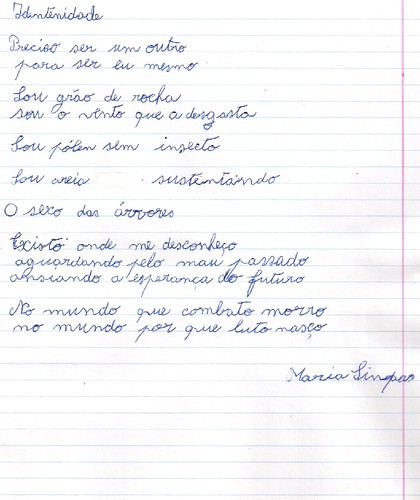 Identenidade
Preciso ser um outro
para ser eu mesmo
Sou grão de rocha
sou o vento que a desgasta
Sou pólen sem insecto
Sou areia sustentando
O sexo das árvores
Existo onde me desconheço
aguardando pelo mau passado
ansiando a esperança do futuro
No mundo que combato morro
no mundo por que luto nasço
Maria